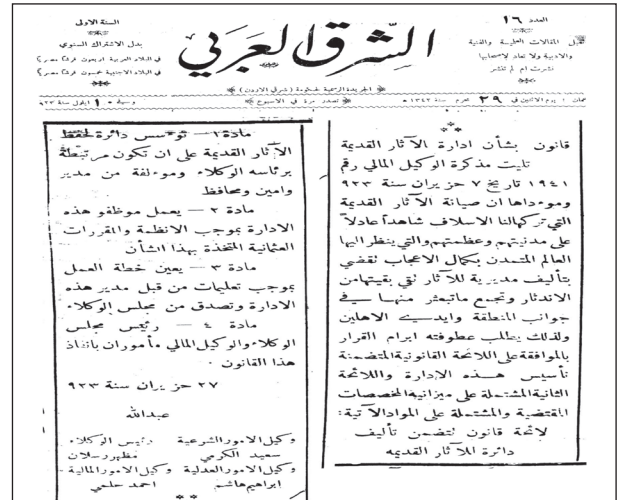 العدد ١٦
تقبل المقالات العلمية والفنية
والادبية ولا تعاد لاصحابها
نشرت ام لم تنشر
الشرق العربي
السنة الاولى
بدل الاشتراك السنوي
في البلاد العربية اربعون
في البلاد الاجنبية خمسون
الجريدة الرسمية لحكومة (شرقي الاردن)
عمان : يوم الاثنين في ٢٩ محرم سنة ١٣٤٢ تصدر مرة في الاسبوع ١٠ ايلول سنة ٩٢٣
قانون بشأن ادارة الآثار القديمة
تليت مذكرة الوكيل المالي رقم
١٩٤١ تاريخ ٧ حزيران سنة ٩٢٣
وموءداها ان صيانة الآثار القديمة
التي تركها لنا الاسلاف شاهداً عادلاً
على مدنيتهم وعظمتهم والتي ينظر اليها
العالم المتمدن بكمال الاعجاب تقضي
بتأليف مديرية للآثار تقي بقيتها من
الاندثار وتجمع ما تبعثر منها في
جوانب المنطقة وايدي الاهلين
ولذلك يطلب عطوفته ابرام القرار
بالموافقة على اللائحة القانونية المتضمنة
تأسيس هذه الادارة واللائحة
الثانية المشتملة على ميزانية المخصصات
المقتضية والمشتملة على المواد الآتية :
لائحة قانون تتضمن تأليف
دائرة للآثار القديمه
مادة ١ — توءسس دائرة لحفظ
الآثار القديمة على ان تكون مرتبطة
برئاسه الوكلاء وموءلفة من مدير
وامين ومحافظ
مادة ٢ — يعمل موظفو هذه
الادارة بموجب الانظمة والمقررات
العثمانية المتخذة بهذا الشأن
مادة ٣ — يعين خطة العمل
بموجب تعليمات من قبل مدير هذه
الادارة وتصدق من مجلس الوكلاء
مادة ٤ — رئيس مجلس
الوكلاء والوكيل المالي مأموران بانفاذ
هذا القانون .
٢٧ حزيران سنة ٩٢٣
عبدالله
وكيل الامور الشرعية رئيس الوكلاء
سعيد الكرمي مظهر رسلان
وكيل الامور العدلية وكيل الامور المالية
ابراهيم هاشم احمد حلمي